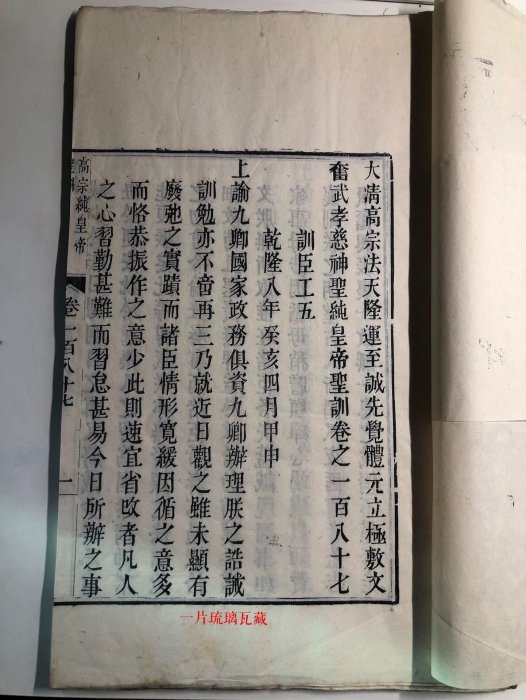 大清高宗法天隆運至誠先覺體元立極敷文
奮武孝慈神聖純皇帝聖訓卷之一百八十七
訓臣工五
乾隆八年癸亥四月甲申
上諭九卿國家政務俱資九卿辦理朕之誥誡
訓勉亦不啻再三乃就近日觀之雖未顯有
廢弛之實蹟而諸臣情形寬緩因循之意多
而恪恭振作之意少此則速宜省改者凡人
之心習勤甚難而習怠甚易今日所辦之事
高宗純皇帝
卷一百八十七
一
一片琉璃瓦藏